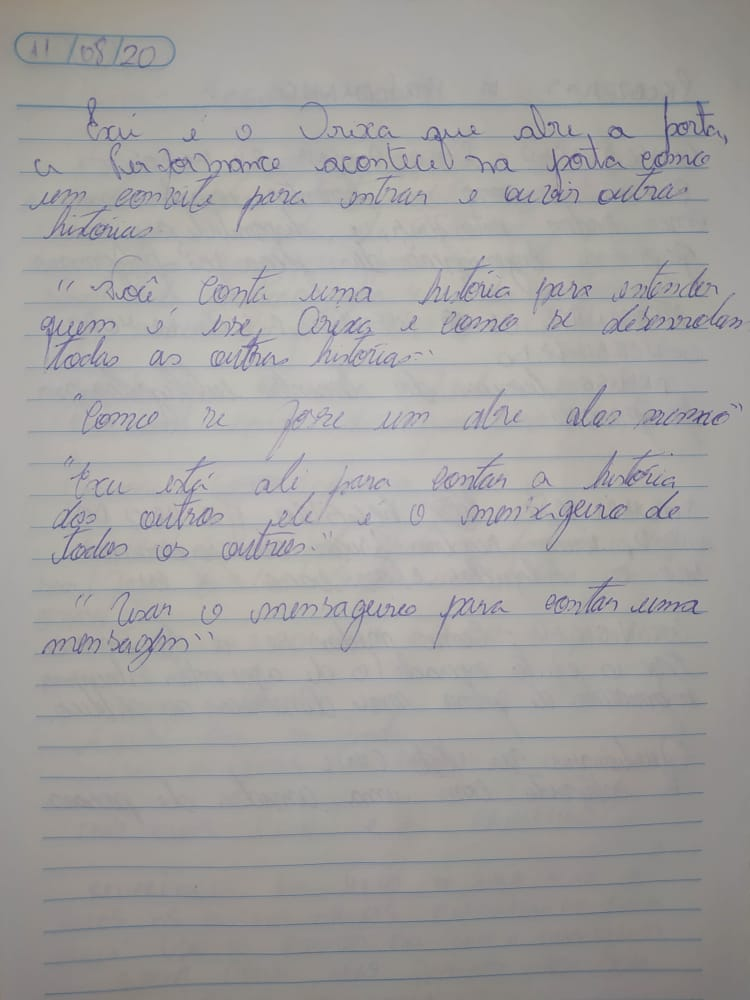 11/08/20
Exu é o Orixa que abre a porta,
a Performance acontece na porta como
um convite para entrar e ouvir outras
histórias
"Você conta uma história para entender
quem é esse Orixa e como se desenrolam
todas as outras histórias"
"Como se fosse um abre alas mesmo"
"Exu está ali para contar a história
dos outros ele é o mensageiro de
todos os outros."
"Usar o mensageiro para contar uma
mensagem"